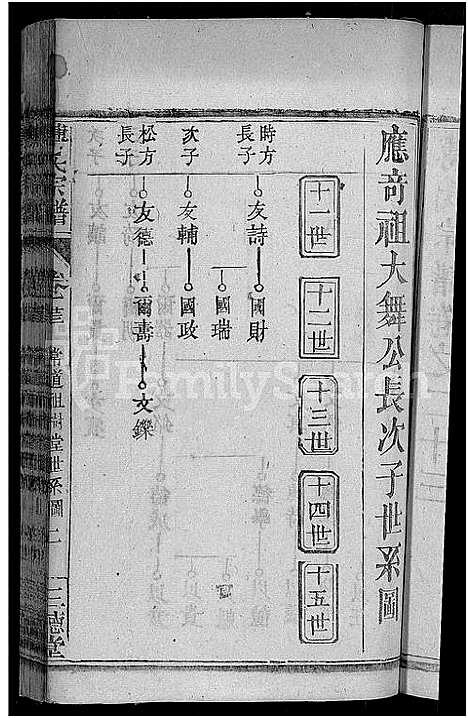 應奇祖大舞公長次子世系圖
十一世
十二世
十三世
十四世
十五世
時方長子
友詩
國財
國瑞
次子
友輔
國政
松方長子
友德
爾壽
文鑠
氏宗譜
卷
祖樹堂世系圖
二
三德堂
FamilySearch